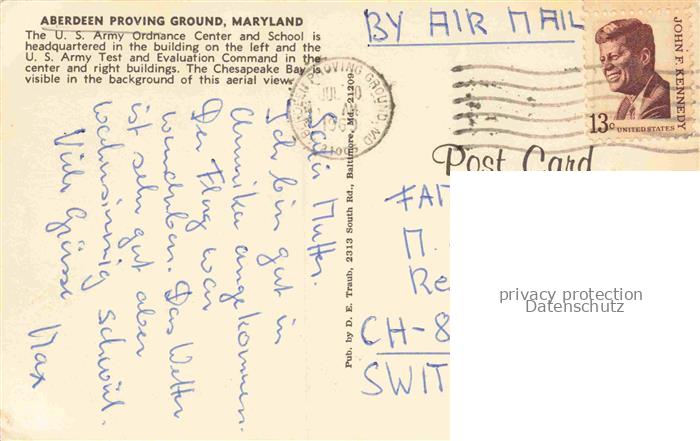 ABERDEEN PROVING GROUND, MARYLAND
The U. S. Army Ordnance Center and School is
headquartered in the building on the left and the
U. S. Army Test and Evaluation Command in the
center and right buildings. The Chesapeake Bay is
visible in the background of this aerial view.
BY AIR MAIL
JOHN F. KENNEDY
13c UNITED STATES
PROVING GROUND, MD
JUL
Post Card
Pub. by D. E. Traub, 2313 South Rd., Baltimore, Md. 21209
Mutter.
Ich bin gut in
Amerika angekommen.
Der Flug war
wunderbar. Das Wetter
ist sehr gut aber
wahnsinnig schwül.
Viele Grüsse
Max
FAM
M.
Re
CH-8
SWIT
privacy protection
Datenschutz